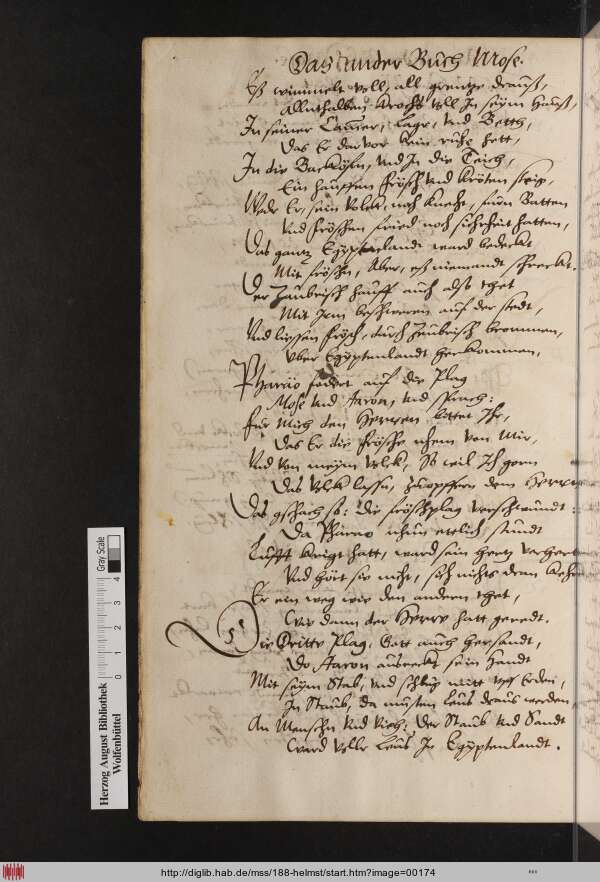 Das ander Buch Mose.
Es wimmelt voll, all grentze drauß,
Allnthalben kroch's voll In seym Hauß,
In seiner Cam̄er, Lage, vnd Betth,
Das Er darvor kein ruhe hett,
In die Backöfn, vnd In die Teich,
Ein hauffen frösch vnd kröten
Wede Er, sein Volck, noch Knecht, fürn Batten
Vnd fröschen fried noch sicherheit hatten,
Das gantz Egyptenlandt ward bedeckt
Mit fröschn, Aber, eß niemandt schreckt.
Der Zaubrisch hauff auch alß thet
Mit Irm beschweren auf der stedt,
Vnd liessen frösch, durch Zaubrisch brommen,
Vber Egyptenlandt herkommen,
Pharao fodert auf die Plag
Mose vnd Aaron, vnd sprach:
Für Mich den Herren bittet Ihr,
Das Er die frösche nhem von Mir,
Vnd von meym Volck, So wil Ich gern
Das Volck lassn, zuopffern dem Herrn
Das gschach so: die froschplag verschwundt:
Da Pharao nhun ettlich stundt
Lufft krigt hatt, ward sein hertz verhert
Vnd hört sie nicht, sich nichts dran kehrt
Er ein weg wie den andern thet,
Wie dann der Herre hatt geredt.
Die Dritte Plag, Gott auch hersandt,
Do Aaron ausreckt sein Handt
Mit seym Stab, vnd schlug mitt vff Erden,
In Staub, da musten Leus draus werden,
An Menschn vnd Vieh: der Staub vnd Sandt
Ward volle Leus In Egyptenlandt.
Herzog August Bibliothek
Wolfenbüttel
0 1 2 3 4
Gray Scale
http://diglib.hab.de/mss/188-helmst/start.htm?image=00174